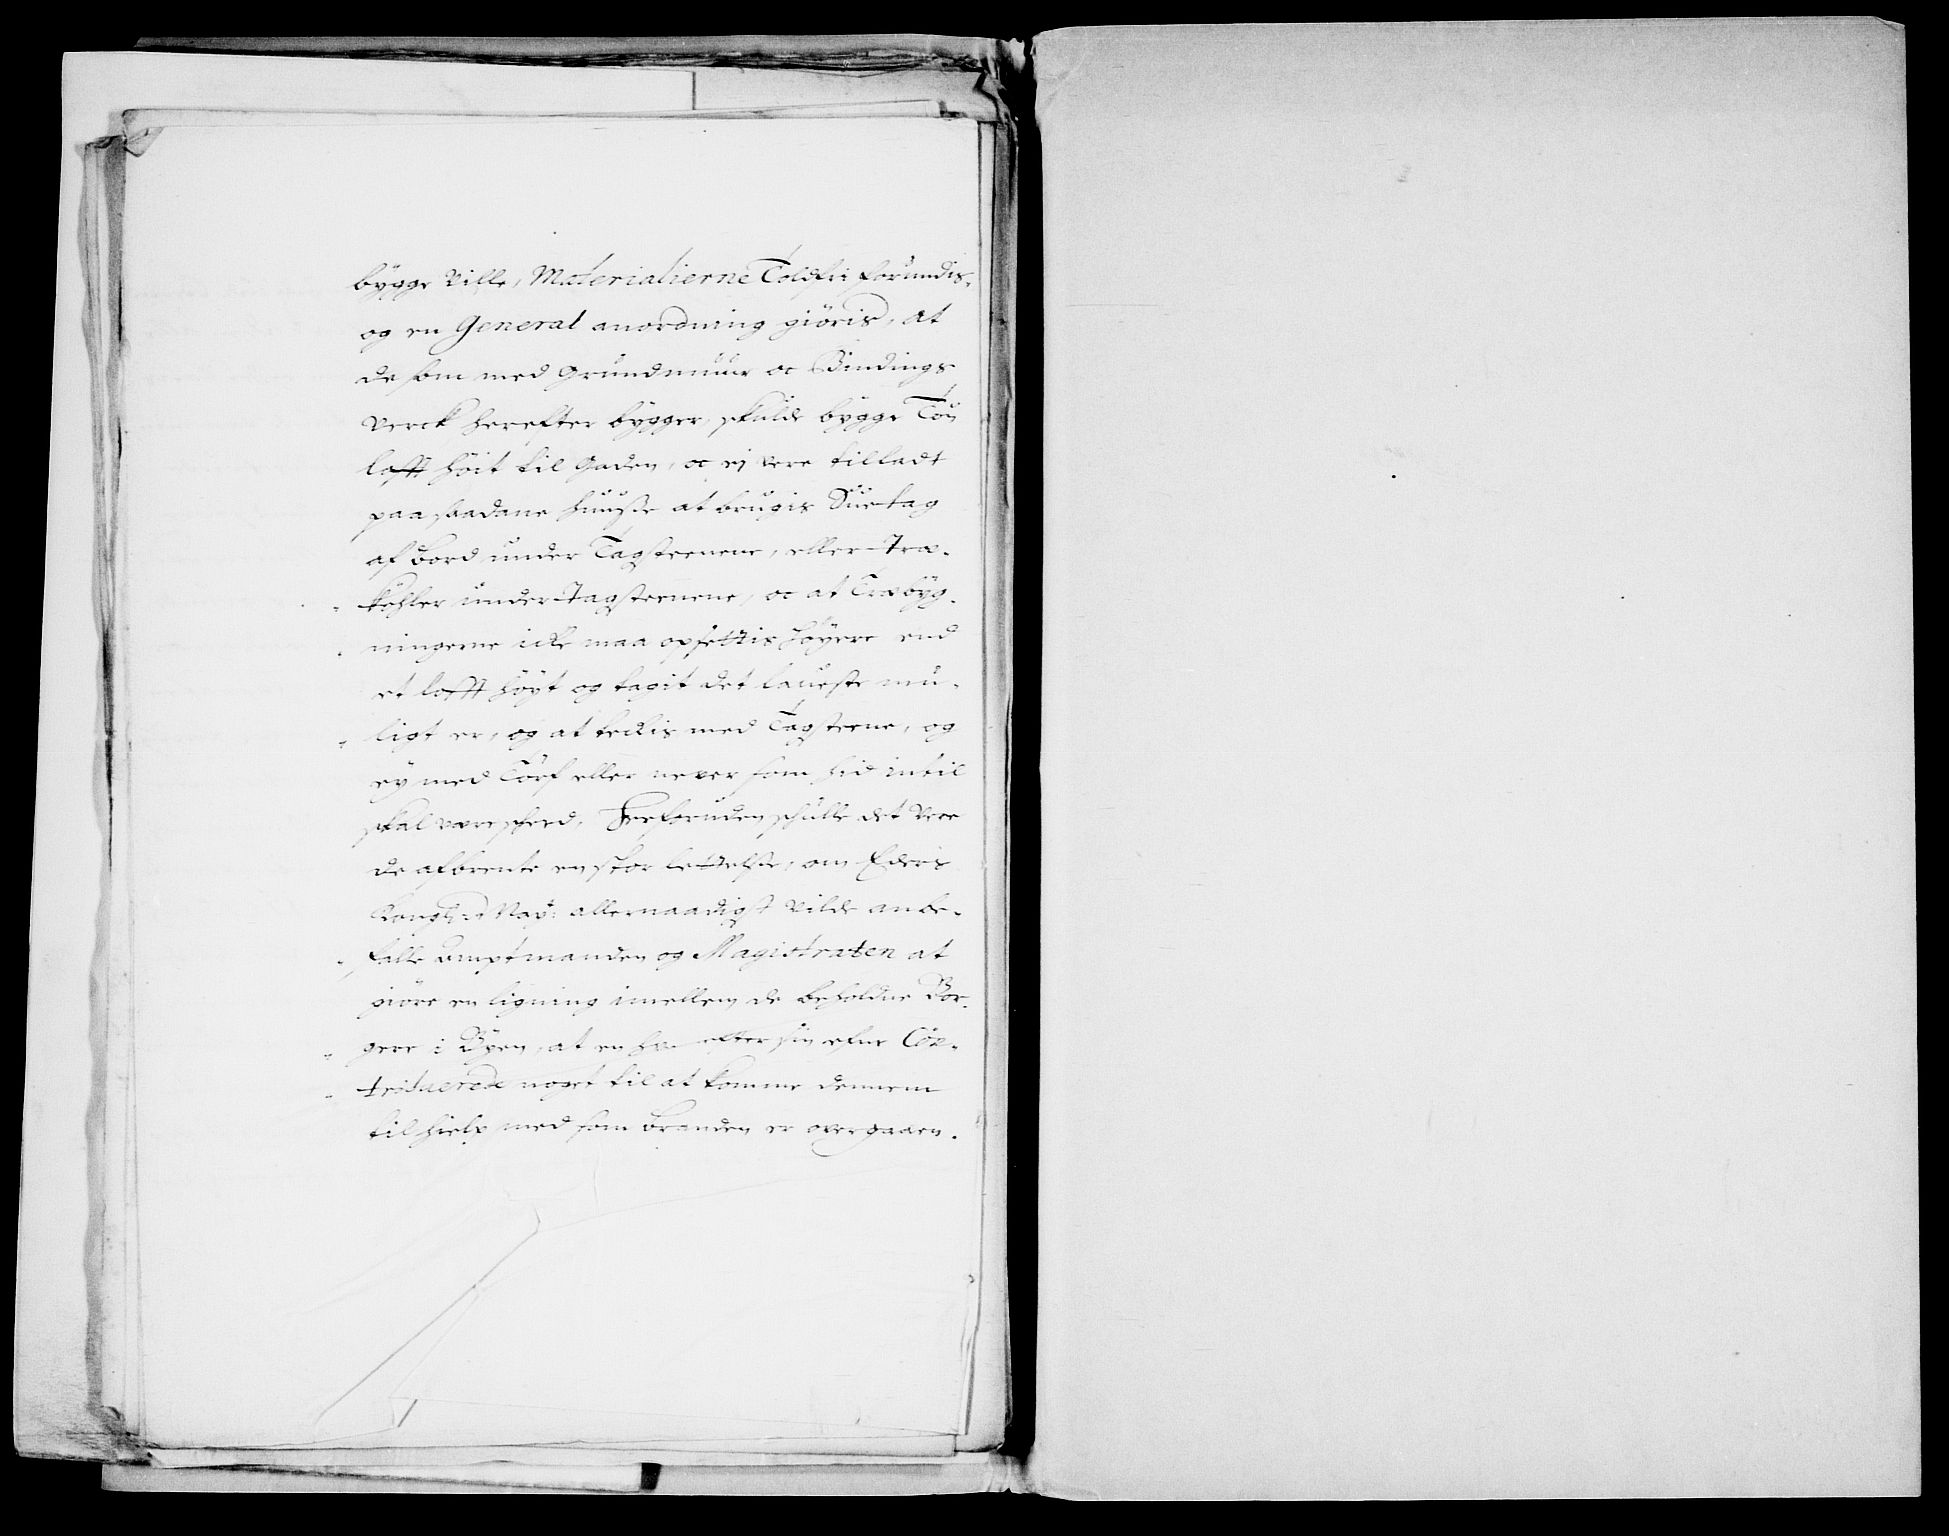 bygge ville, Materialierne Toldfri forundis,
og en General anordning giöris, at
de som med Grundmuur oc Bindings
verck herefter bygger, skulde bygge Tou
lofft höit til Gaden, oc ej vere tilladt
paa saadane huusse at brugis Suetag
af Bord under Tagsteenene, eller Træ-
kehler under Tagsteenene, oc at Træbyg-
ningerne icke maa opsettis höyere end
et lofft höyt og tagit det laveste mu-
ligt er, og at teckis med Tagsteene, og
ey med Törf eller never som hid intil
skal være scheed. Herforuden schulle det vere
de afbrente en stor lettelse, om Eders
Kongl: May: allernaadigst vilde anbe-
falle Amptmanden og Magistraten at
giöre en ligning imellem de beholdne Bor-
gere i Byen, at en hver efter sin efne Con-
tribuerede noget til at komme dennem
til hielp med som Branden er overgaaen.